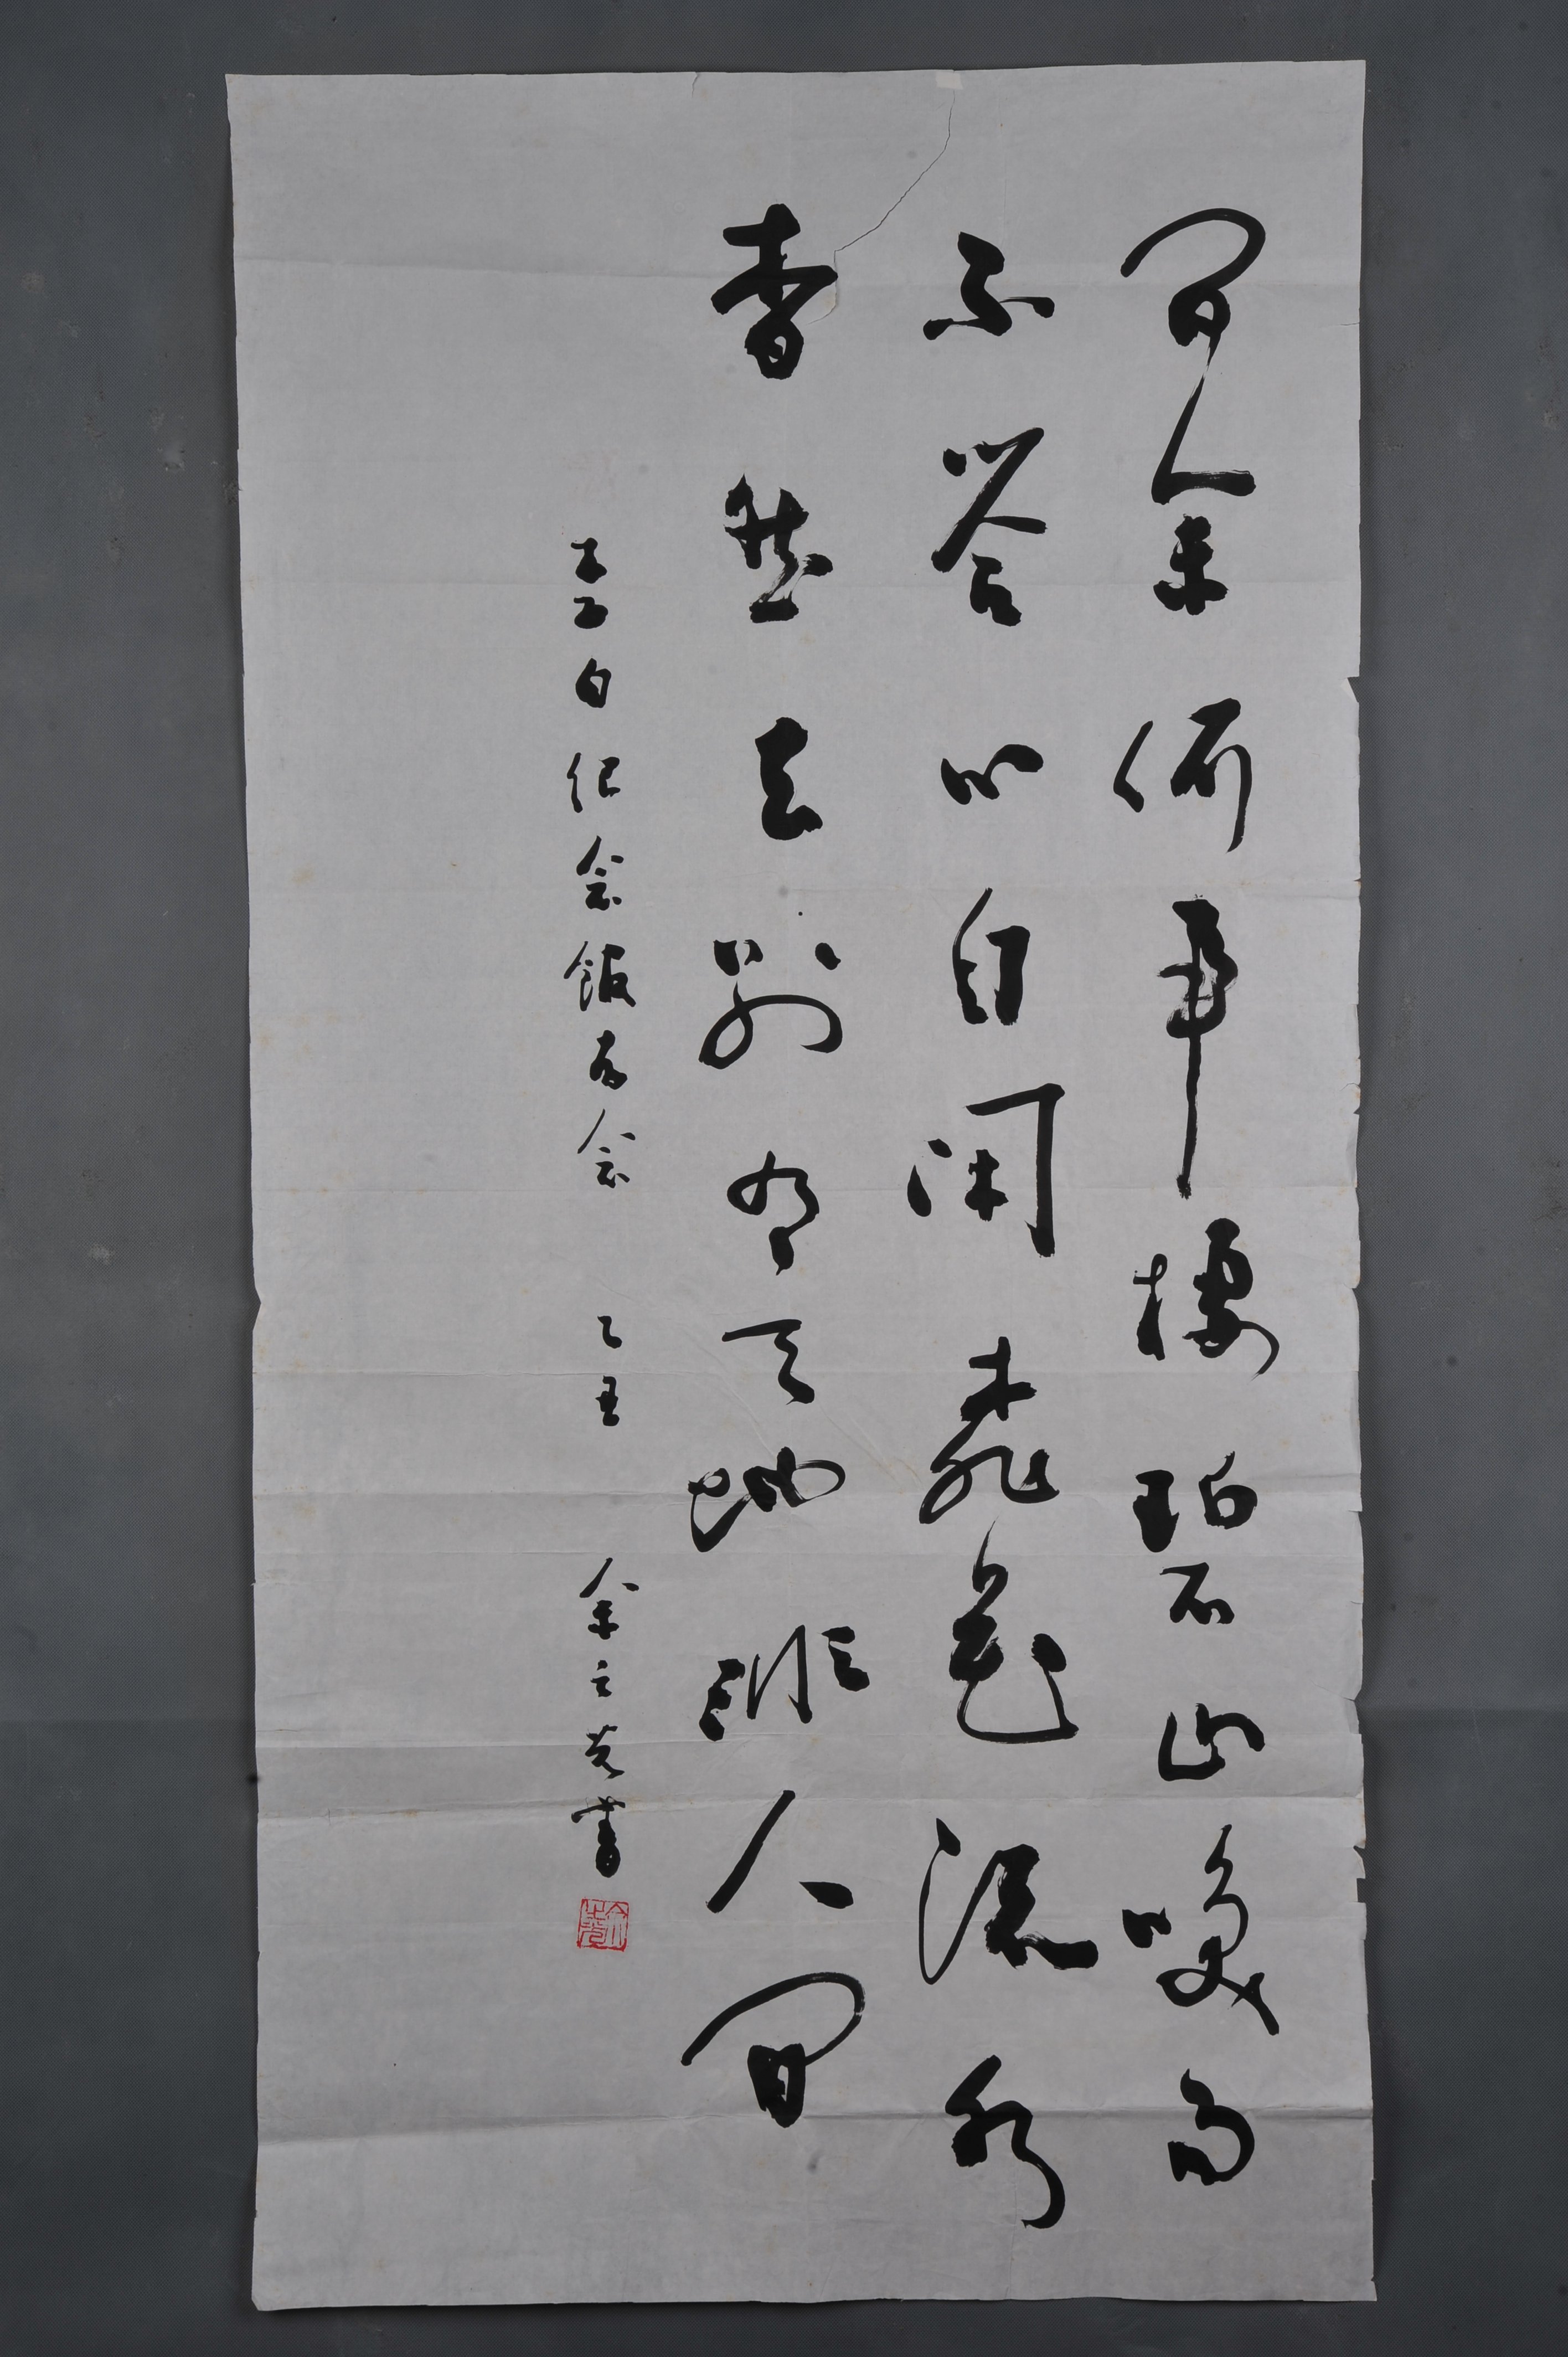 問余何事棲碧山咲而
不答心自閑桃花流水
杳然去別有天地非人間
李白紀念館存念 乙丑 余之光書